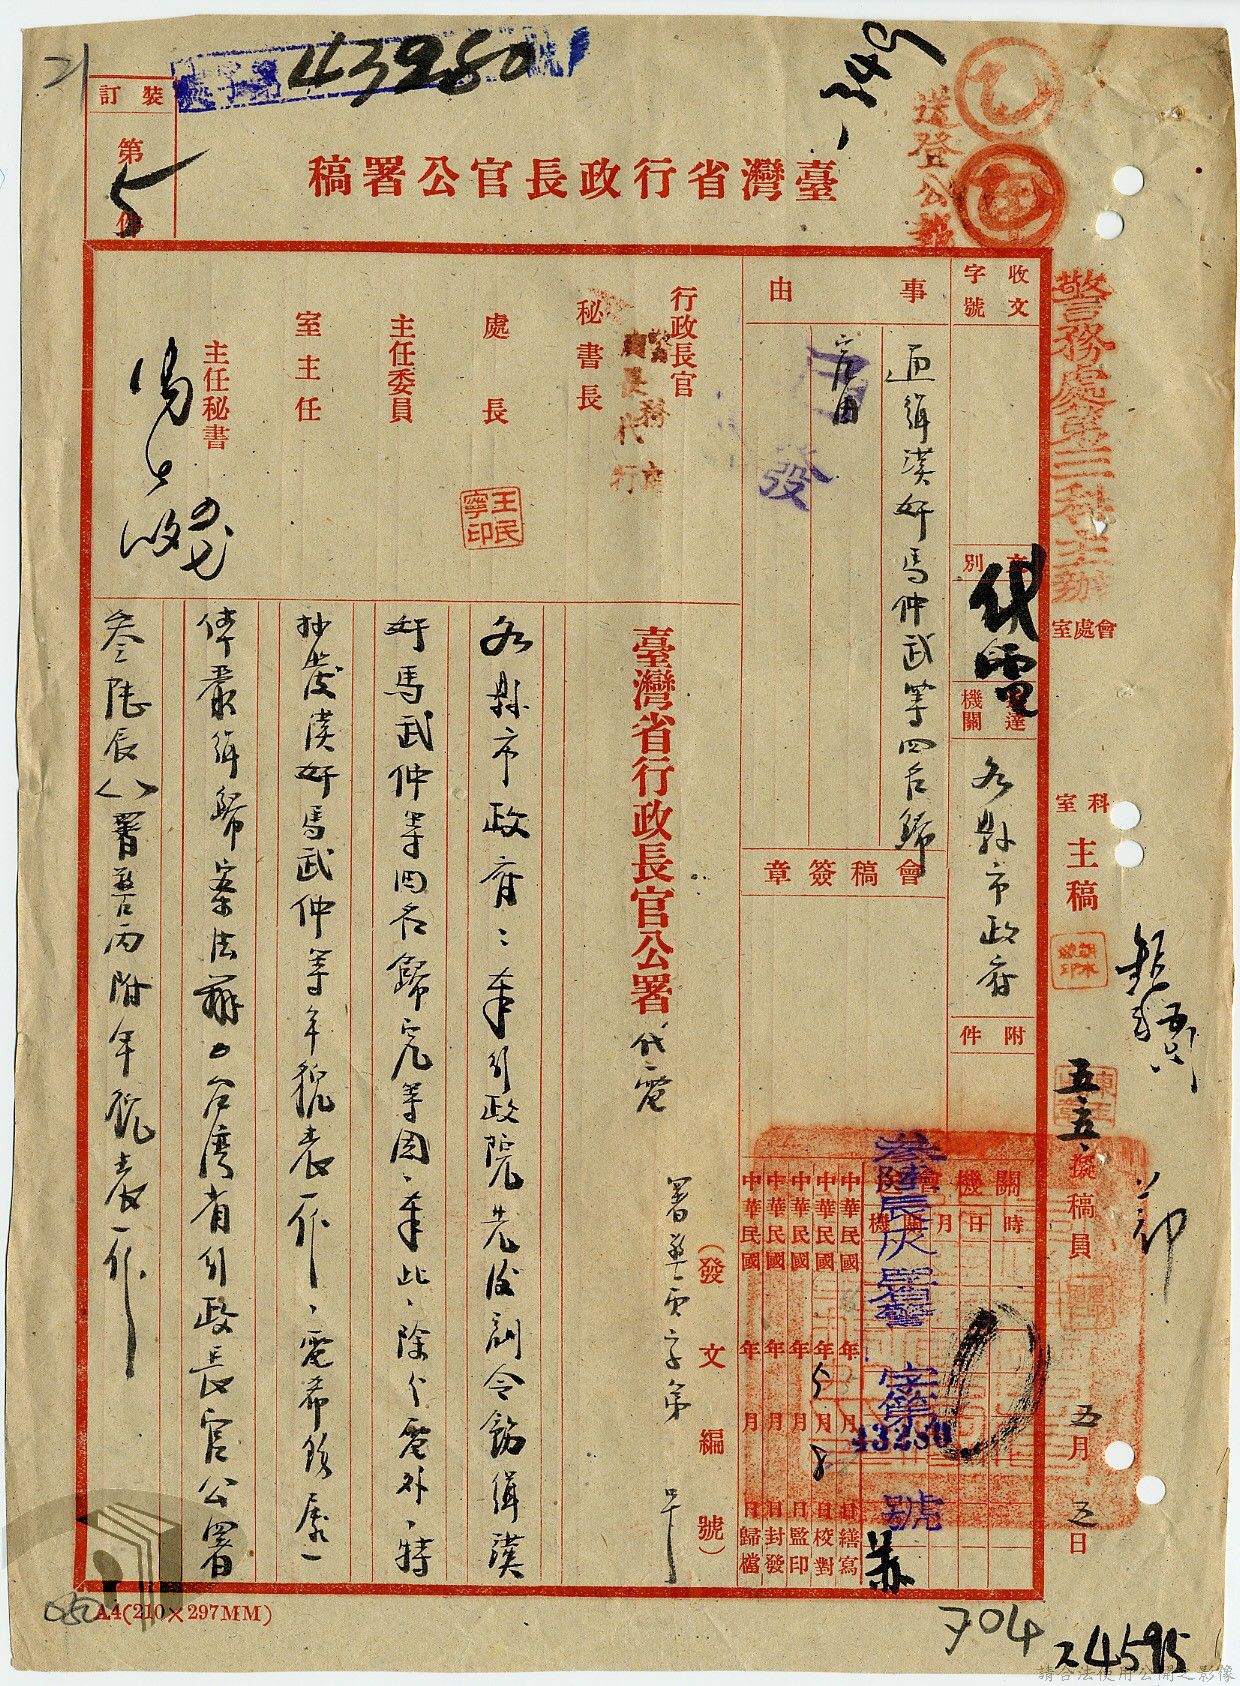 21
43280
349
裝訂
第5件
臺灣省行政長官公署稿
送登公報
乙
警務處第三科主辦
收文
字號
文別
代電
送達機關
各縣市政府
附件
事由
通緝漢奸馬仲武等四名歸
案由
發
會稿簽章
行政長官
秘書長
警務處
處長代行
處長
王民寧印
主任委員
室主任
主任秘書
會處室
科室
主稿
五五、
撰稿員
五月五日
臺灣省行政長官公署代電
署警丙字第 號
(發文編號)
各縣市政府：奉行政院先後訓令飭緝漢
奸馬武仲等四名歸究等因，奉此，除分電外，特
抄發漢奸馬武仲等年貌表一份，電希飭屬一
体嚴緝歸案法辦。台灣省行政長官公署
叁陸辰（）署警丙附年貌表一份
機關
時
日
月
中華民國 年 月 日繕寫
中華民國 年5月8日校對
中華民國 年 月 日監印
中華民國 年 月 日封發
中華民國 年 月 日歸檔
叁陸辰灰署警
字第43280號
蘇
A4(210×297MM)
050
704
24595
請合法使用公開之影像